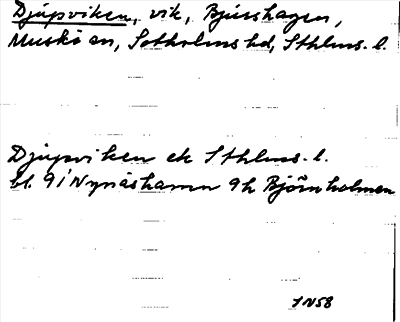 Djupviken, vik, Björshagen,
Muskö sn, Sotholms hd, Sthlms. l.
Djupviken ek Sthlms. l.
bl. 9i Nynäshamn 9h Björnholmen
IN58